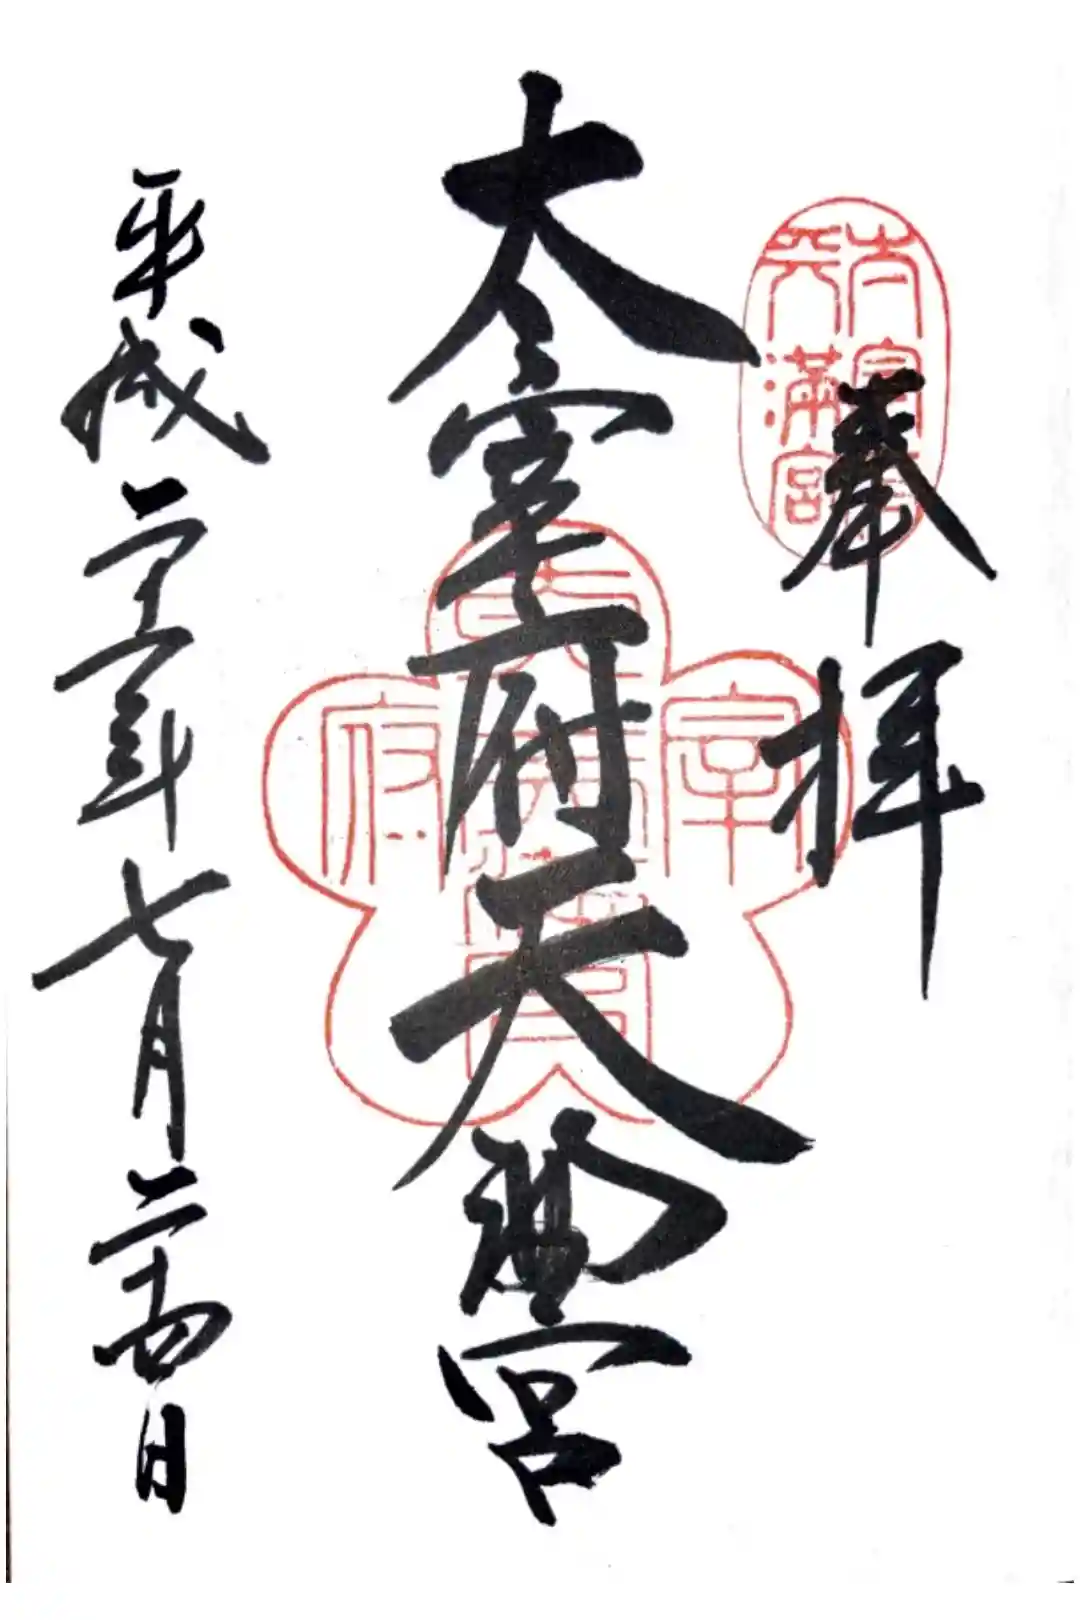 奉拝
太宰府天満宮
平成二十年七月二十四日
太宰府
天満宮